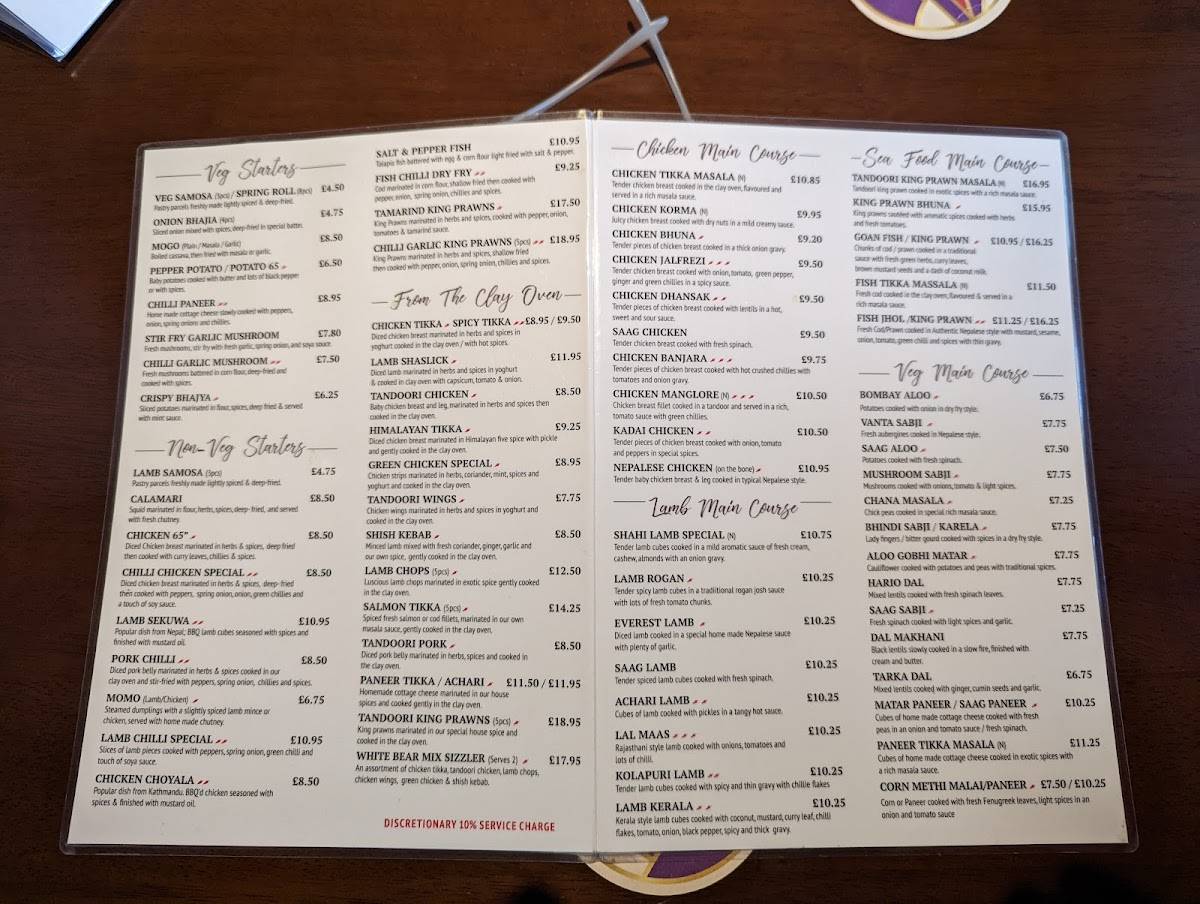 Veg Starters
VEG SAMOSA (3pcs) / SPRING ROLL (8pcs) £4.50
Pastry parcels freshly made lightly spiced & deep-fried.
ONION BHAJIA (4pcs) £4.75
Sliced onion mixed with spices, deep-fried in special batter.
MOGO (Plain / Masala / Garlic) £8.50
Boiled cassava, then fried with masala or garlic.
PEPPER POTATO / POTATO 65 £6.50
Baby potatoes cooked with butter and lots of black pepper
or with spices.
CHILLI PANEER £8.95
Home made cottage cheese slowly cooked with peppers,
onion, spring onions and chillies.
STIR FRY GARLIC MUSHROOM £7.80
Fresh mushrooms, stir fry with fresh garlic, spring onion, and soya sauce.
CHILLI GARLIC MUSHROOM £7.50
Fresh mushrooms battered in corn flour, deep-fried and
cooked with spices.
CRISPY BHAJYA £6.25
Sliced potatoes marinated in flour, spices, deep fried & served
with mint sauce.
Non-Veg Starters
LAMB SAMOSA (3pcs) £4.75
Pastry parcels freshly made lightly spiced & deep-fried.
CALAMARI £8.50
Squid marinated in flour, herbs, spices, deep- fried, and served
with fresh chutney.
CHICKEN 65" £8.50
Diced Chicken breast marinated in herbs & spices, deep fried
then cooked with curry leaves, chillies & spices.
CHILLI CHICKEN SPECIAL £8.50
Diced chicken breast marinated in herbs & spices, deep- fried
then cooked with peppers, spring onion, onion, green chillies and
a touch of soy sauce.
LAMB SEKUWA £10.95
Popular dish from Nepal; BBQ lamb cubes seasoned with spices and
finished with mustard oil.
PORK CHILLI £8.50
Diced pork belly marinated in herbs & spices cooked in our
clay oven and stir-fried with peppers, spring onion, chillies and spices.
MOMO (Lamb/Chicken) £6.75
Steamed dumplings with a slightly spiced lamb mince or
chicken, served with home made chutney.
LAMB CHILLI SPECIAL £10.95
Slices of lamb pieces cooked with peppers, spring onion, green chilli and
touch of soya sauce.
CHICKEN CHOYALA £8.50
Popular dish from Kathmandu. BBQ'd chicken seasoned with
spices & finished with mustard oil.
SALT & PEPPER FISH £10.95
Talapia fish battered with egg & corn flour light fried with salt & pepper.
FISH CHILLI DRY FRY £9.25
Cod marinated in corn flour, shallow fried then cooked with
pepper, onion, spring onion, chillies and spices.
TAMARIND KING PRAWNS £17.50
King Prawns marinated in herbs and spices, cooked with pepper, onion,
tomatoes & tamarind sauce.
CHILLI GARLIC KING PRAWNS (5pcs) £18.95
King Prawns marinated in herbs and spices, shallow fried
then cooked with pepper, onion, spring onion, chillies and spices.
From The Clay Oven
CHICKEN TIKKA SPICY TIKKA £8.95 / £9.50
Diced chicken breast marinated in herbs and spices in
yoghurt cooked in the clay oven / with hot spices.
LAMB SHASLICK £11.95
Diced lamb marinated in herbs and spices in yoghurt
& cooked in clay oven with capsicum, tomato & onion.
TANDOORI CHICKEN £8.50
Baby chicken breast and leg, marinated in herbs and spices then
cooked in the clay oven.
HIMALAYAN TIKKA £9.25
Diced chicken breast marinated in Himalayan five spice with pickle
and gently cooked in the clay oven.
GREEN CHICKEN SPECIAL £8.95
Chicken strips marinated in herbs, coriander, mint, spices and
yoghurt and cooked in the clay oven.
TANDOORI WINGS £7.75
Chicken wings marinated in herbs and spices in yoghurt and
cooked in the clay oven.
SHISH KEBAB £8.50
Minced lamb mixed with fresh coriander, ginger, garlic and
our own spice, gently cooked in the clay oven.
LAMB CHOPS (5pcs) £12.50
Luscious lamb chops marinated in exotic spice gently cooked
in the clay oven.
SALMON TIKKA (5pcs) £14.25
Spiced fresh salmon or cod fillets, marinated in our own
masala sauce, gently cooked in the clay oven,
TANDOORI PORK £8.50
Diced pork belly marinated in herbs, spices and cooked in
the clay oven.
PANEER TIKKA / ACHARI £11.50 / £11.95
Homemade cottage cheese marinated in our house
spices and cooked gently in the clay oven.
TANDOORI KING PRAWNS (5pcs) £18.95
King prawns marinated in our special house spice and
cooked in the clay oven.
WHITE BEAR MIX SIZZLER (Serves 2) £17.95
An assortment of chicken tikka, tandoori chicken, lamb chops,
chicken wings, green chicken & shish kebab.
DISCRETIONARY 10% SERVICE CHARGE
Chicken Main Course
CHICKEN TIKKA MASALA (N) £10.85
Tender chicken breast cooked in the clay oven, flavoured and
served in a rich masala sauce.
CHICKEN KORMA (N) £9.95
Juicy chicken breast cooked with dry nuts in a mild creamy sauce.
CHICKEN BHUNA £9.20
Tender pieces of chicken breast cooked in a thick onion gravy.
CHICKEN JALFREZI £9.50
Tender chicken breast cooked with onion, tomato, green pepper,
ginger and green chillies in a spicy sauce.
CHICKEN DHANSAK £9.50
Tender pieces of chicken breast cooked with lentils in a hot,
sweet and sour sauce.
SAAG CHICKEN £9.50
Tender chicken breast cooked with fresh spinach.
CHICKEN BANJARA £9.75
Tender pieces of chicken breast cooked with hot crushed chillies with
tomatoes and onion gravy.
CHICKEN MANGLORE (N) £10.50
Chicken breast fillet cooked in a tandoor and served in a rich,
tomato sauce with green chillies.
KADAI CHICKEN £10.50
Tender pieces of chicken breast cooked with onion, tomato
and peppers in special spices.
NEPALESE CHICKEN (on the bone) £10.95
Tender baby chicken breast & leg cooked in typical Nepalese style.
Lamb Main Course
SHAHI LAMB SPECIAL (N) £10.75
Tender lamb cubes cooked in a mild aromatic sauce of fresh cream,
cashew, almonds with an onion gravy.
LAMB ROGAN £10.25
Tender spicy lamb cubes in a tradiitional rogan josh sauce
with lots of fresh tomato chunks.
EVEREST LAMB £10.25
Diced lamb cooked in a special home made Nepalese sauce
with plenty of garlic.
SAAG LAMB £10.25
Tender spiced lamb cubes cooked with fresh spinach.
ACHARI LAMB £10.25
Cubes of lamb cooked with pickles in a tangy hot sauce.
LAL MAAS £10.25
Rajasthani style lamb cooked with onions, tomatoes and
lots of chilli.
KOLAPURI LAMB £10.25
Tender lamb cubes cooked with spicy and thin gravy with chillie flakes
LAMB KERALA £10.25
Kerala style lamb cubes cooked with coconut, mustard, curry leaf, chilli
flakes, tomato, onion, black pepper, spicy and thick gravy.
Sea Food Main Course
TANDOORI KING PRAWN MASALA (N) £16.95
Tandoori king prawn cooked in exotic spices with a rich masala sauce.
KING PRAWN BHUNA £15.95
King prawns sautéed with aromatic spices cooked with herbs
and fresh tomatoes.
GOAN FISH / KING PRAWN £10.95 / £16.25
Chunks of cod / prawn cooked in a traditional
sauce with fresh green herbs, curry leaves,
brown mustard seeds and a dash of coconut milk.
FISH TIKKA MASSALA (N) £11.50
Fresh cod cooked in the clay oven, flavoured & served in a
rich masala sauce.
FISH JHOL /KING PRAWN £11.25 / £16.25
Fresh Cod/Prawn cooked in Authentic Nepalese style with mustard, sesame,
onion, tomato, green chilli and spices with thin gravy.
Veg Main Course
BOMBAY ALOO £6.75
Potatoes cooked with onion in dry fry style.
VANTA SABJI £7.75
Fresh aubergines cooked in Nepalese style.
SAAG ALOO £7.50
Potatoes cooked with fresh spinach.
MUSHROOM SABJI £7.75
Mushrooms cooked with onions, tomato & light spices.
CHANA MASALA £7.25
Chick peas cooked in special rich masala sauce.
BHINDI SABJI / KARELA £7.75
Lady fingers / bitter gourd cooked with spices in a dry fry style.
ALOO GOBHI MATAR £7.75
Cauliflower cooked with potatoes and peas with traditional spices.
HARIO DAL £7.75
Mixed lentils cooked with fresh spinach leaves.
SAAG SABJI £7.25
Fresh spinach cooked with light spices and garlic.
DAL MAKHANI £7.75
Black lentils slowly cooked in a slow fire, finished with
cream and butter.
TARKA DAL £6.75
Mixed lentils cooked with ginger, cumin seeds and garlic.
MATAR PANEER / SAAG PANEER £10.25
Cubes of home made cottage cheese cooked with fresh
peas in an onion and tomato sauce / fresh spinach.
PANEER TIKKA MASALA (N) £11.25
Cubes of home made cottage cheese cooked in exotic spices with
a rich masala sauce.
CORN METHI MALAI/PANEER £7.50 / £10.25
Corn or Paneer cooked with fresh Fenugreek leaves, light spices in an
onion and tomato sauce